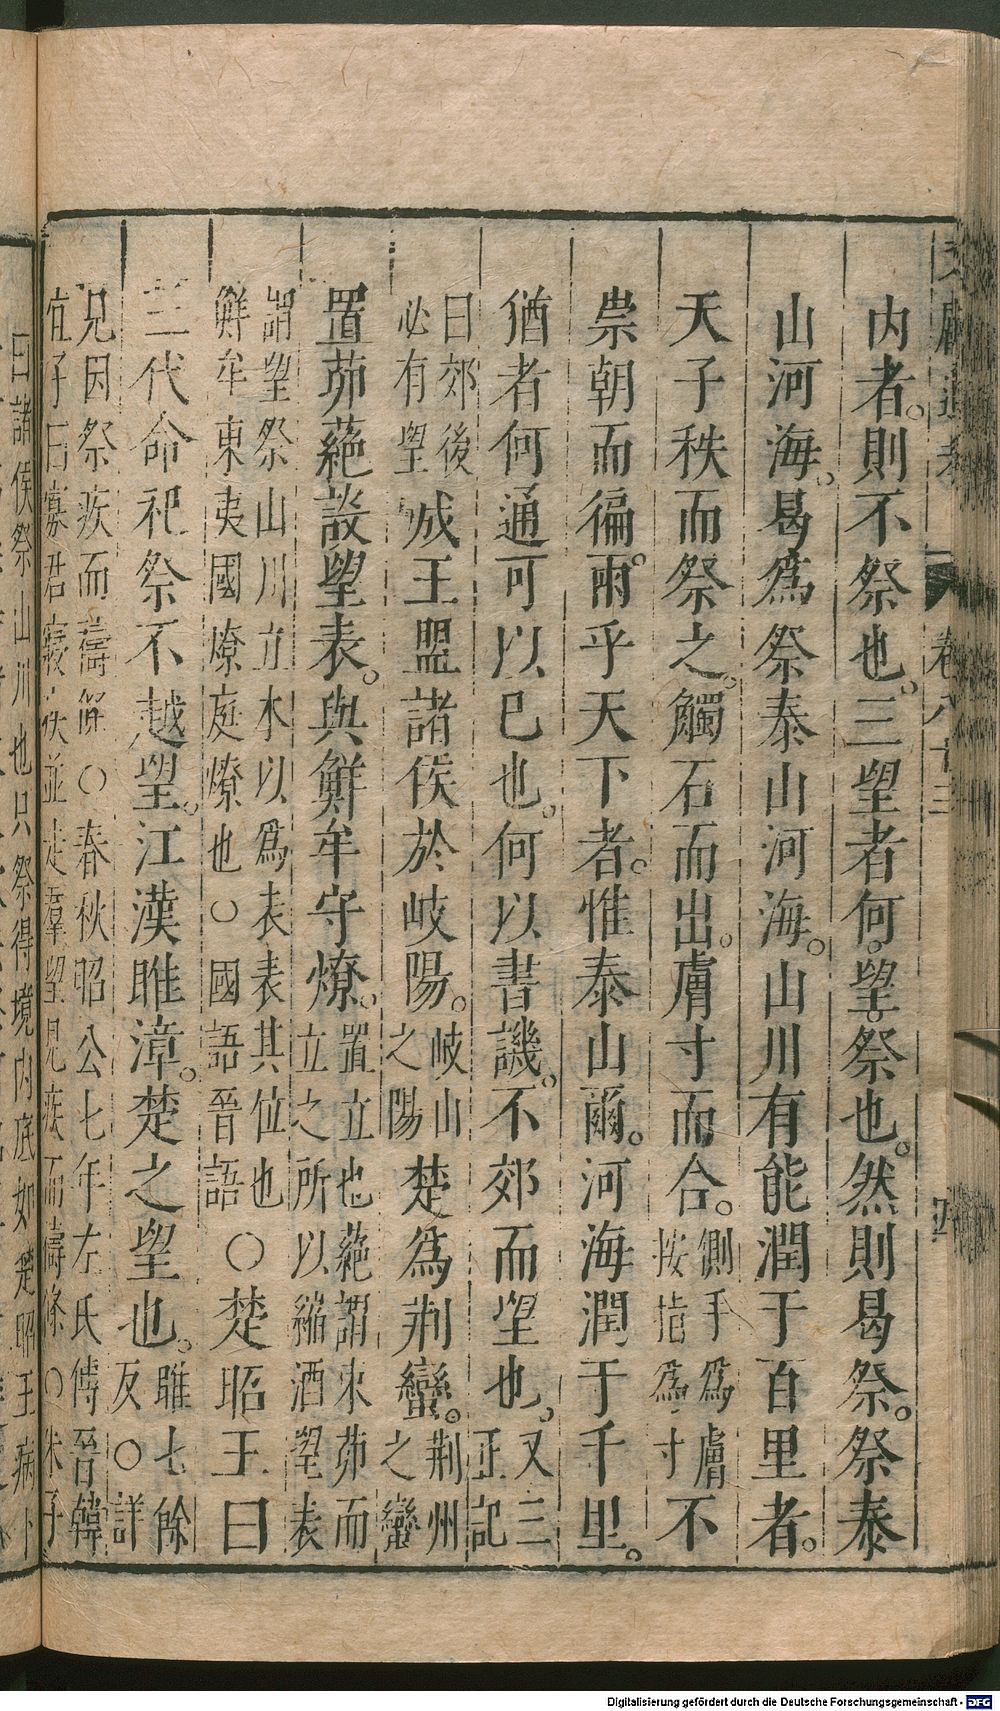 內者則不祭也三望者何望祭也然則曷祭祭泰
山河海曷爲祭泰山河海山川有能潤于百里者
天子秩而祭之觸石而出膚寸而合側手爲膚按指爲寸不
崇朝而徧雨乎天下者惟泰山爾河海潤于千里
猶者何通可以已也何以書譏不郊而望也又三正記
曰郊後必有望成王盟諸侯於岐陽岐山之陽楚爲荆蠻荆州之蠻
置茆蕝設望表與鮮牟守燎置立也蕝謂束茆而立之所以縮酒望表
謂望祭山川立木以爲表表其位也鮮牟東夷國燎庭燎也○國語晉語○楚昭王曰
三代命祀祭不越望江漢睢漳楚之望也睢七餘反○詳
見因祭疾而禱條○春秋昭公七年左氏傳晉韓
宣子曰寡君寢疾並走羣望見疾而禱條○朱子
曰諸侯祭山川也只祭得境內底如楚昭王病卜
Digitalisierung gefördert durch die Deutsche Forschungsgemeinschaft - DFG